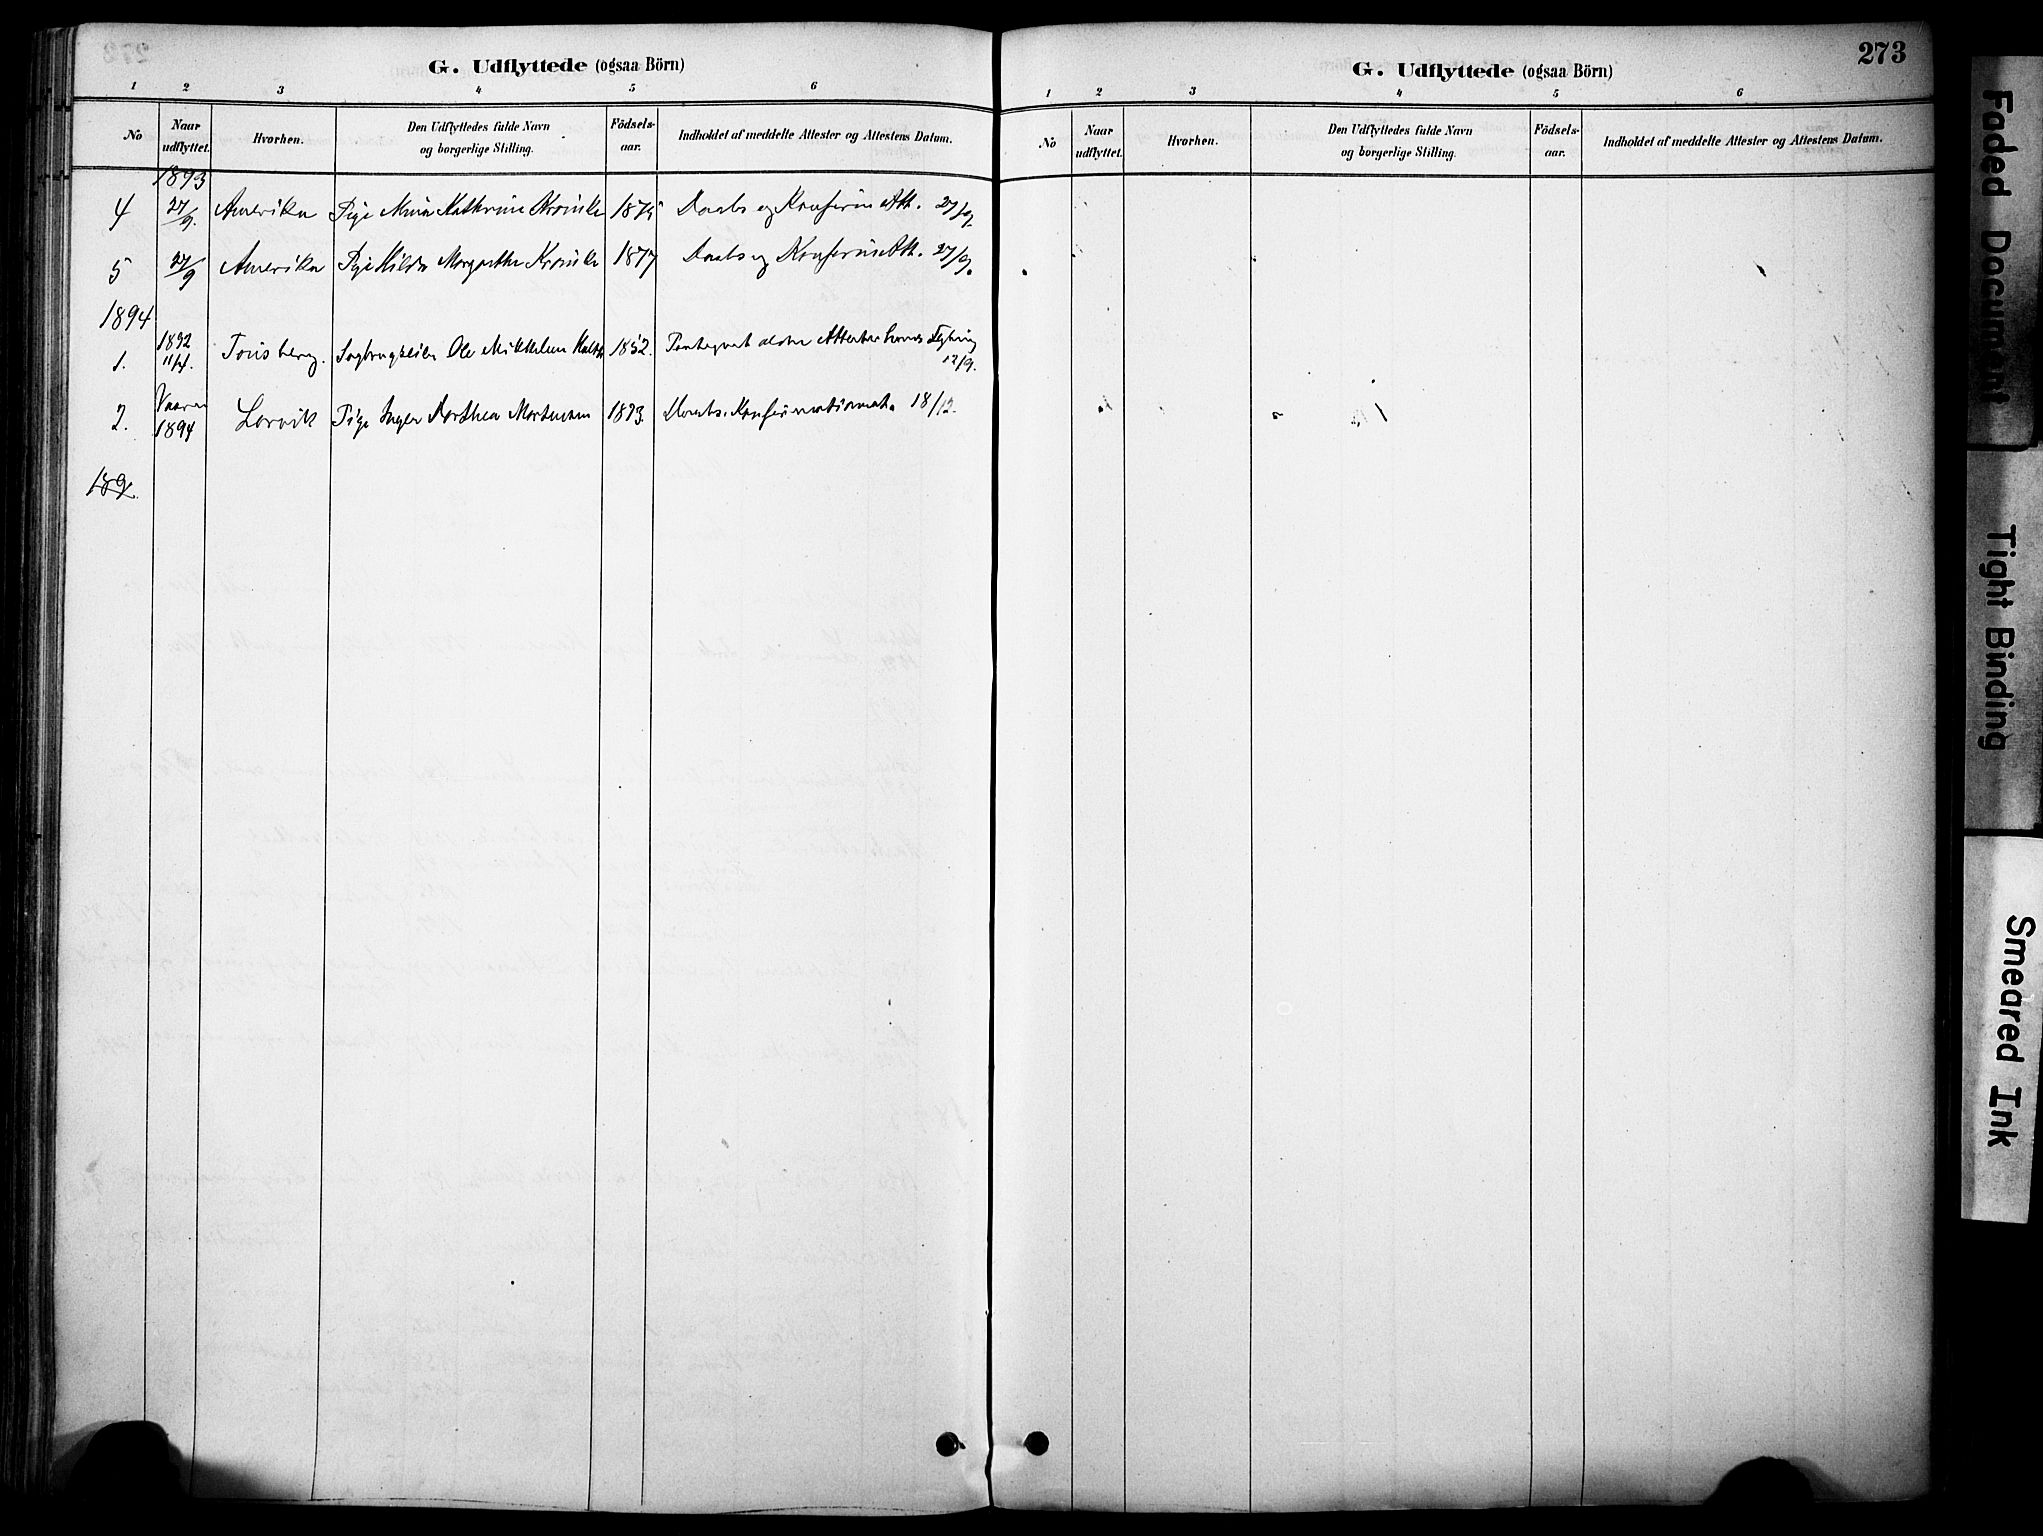 G. Udflyttede (ogsaa Börn)
1 2 3 4 5 6
No Naar udflyttet. Hvorhen. Den Udflyttedes fulde Navn og borgerlige Stilling. Födsels-aar. Indholdet af meddelte Attester og Attestens Datum.
1893
4 27/9. Amerika Pige Mina Kathrine Kronike 1875 Daabs og Konfirm Att. 27/9.
5 27/9 Amerika Pige Hilda Margrethe Kronike 1877 Daabs og Konfirm Att. 27/9.
1894
1. 1892 11/4. Tønsberg. Ole Mikkelsen 1852. Attester 12/9.
2. Vaaren 1894 Larvik Pige Inger Dorthea Mortensen 1873. Daabs. Konfirmationsat. 18/12.
189.
G. Udflyttede (ogsaa Börn)
273
1 2 3 4 5 6
No Naar udflyttet. Hvorhen. Den Udflyttedes fulde Navn og borgerlige Stilling. Födsels-aar. Indholdet af meddelte Attester og Attestens Datum.
Faded Document
Tight Binding
Smeared Ink